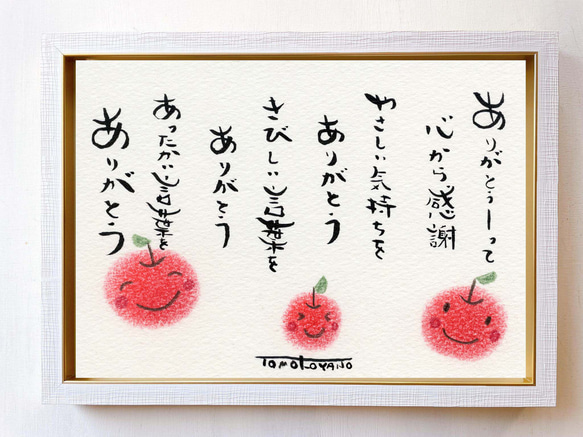 ありがとうーって
心から感謝
やさしい気持ちを
ありがとう
きびしい言葉を
ありがとう
あったかい言葉を
ありがとう
TOMOKOYANO